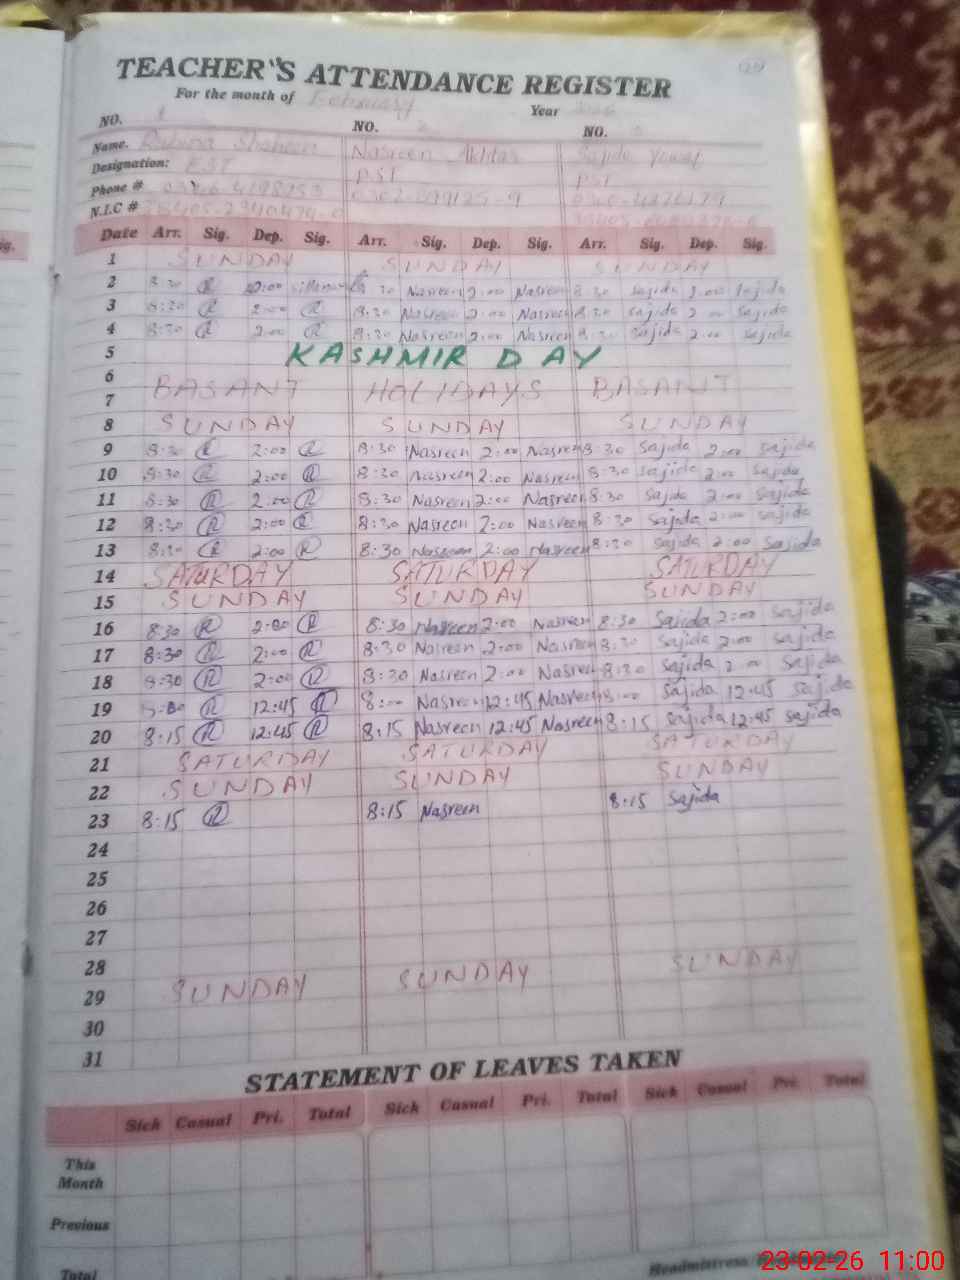 TEACHER'S ATTENDANCE REGISTER
For the month of February Year
NO. 1 NO. 2 NO. 3
Name. Rubina Shaheen Nasreen Akhtar Sajida Yousaf
Designation: EST PST PST
Phone #
N.I.C #
Date Arr. Sig. Dep. Sig. Arr. Sig. Dep. Sig. Arr. Sig. Dep. Sig.
1 SUNDAY SUNDAY SUNDAY
2 8:30 R 2:00 8:30 Nasreen 2:00 Nasreen 8:30 Sajida 2:00 Sajida
3 8:30 R 2:00 R 8:30 Nasreen 2:00 Nasreen 8:30 Sajida 2:00 Sajida
4 8:30 R 2:00 R 8:30 Nasreen 2:00 Nasreen 8:30 Sajida 2:00 Sajida
5 KASHMIR DAY
6
7 BASANT HOLIDAYS BASANT
8 SUNDAY SUNDAY SUNDAY
9 8:30 R 2:00 R 8:30 Nasreen 2:00 Nasreen 8:30 Sajida 2:00 Sajida
10 8:30 R 2:00 R 8:30 Nasreen 2:00 Nasreen 8:30 Sajida 2:00 Sajida
11 8:30 R 2:00 R 8:30 Nasreen 2:00 Nasreen 8:30 Sajida 2:00 Sajida
12 8:30 R 2:00 R 8:30 Nasreen 2:00 Nasreen 8:30 Sajida 2:00 Sajida
13 8:30 R 2:00 R 8:30 Nasreen 2:00 Nasreen 8:30 Sajida 2:00 Sajida
14 SATURDAY SATURDAY SATURDAY
15 SUNDAY SUNDAY SUNDAY
16 8:30 R 2:00 R 8:30 Nasreen 2:00 Nasreen 8:30 Sajida 2:00 Sajida
17 8:30 R 2:00 R 8:30 Nasreen 2:00 Nasreen 8:30 Sajida 2:00 Sajida
18 8:30 R 2:00 R 8:30 Nasreen 2:00 Nasreen 8:30 Sajida 2:00 Sajida
19 R 12:45 R 8:00 Nasreen 12:45 Nasreen 8:00 Sajida 12:45 Sajida
20 8:15 R 12:45 R 8:15 Nasreen 12:45 Nasreen 8:15 Sajida 12:45 Sajida
21 SATURDAY SATURDAY SATURDAY
22 SUNDAY SUNDAY SUNDAY
23 8:15 R 8:15 Nasreen 8:15 Sajida
24
25
26
27
28
29 SUNDAY SUNDAY SUNDAY
30
31
STATEMENT OF LEAVES TAKEN
Sick Casual Pri. Total Sick Casual Pri. Total Sick Casual Pri. Total
This Month
Previous
Total
Headmistress
23-02-26 11:00